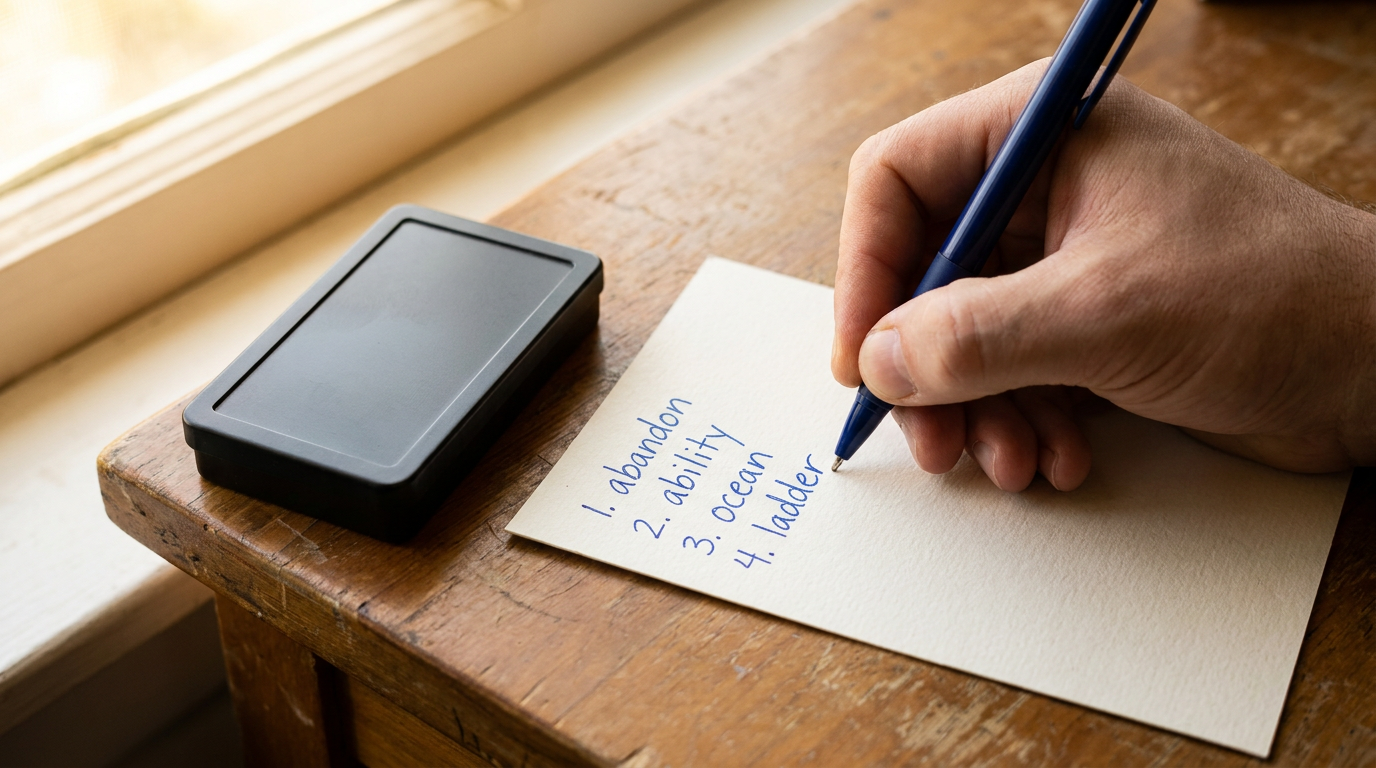 1. abandon
2. ability
3. ocean
4. ladder